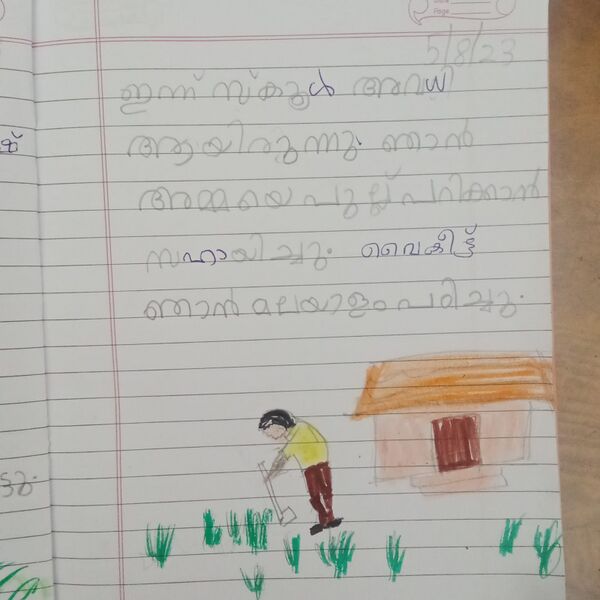 Page
5/8/23
ഇന്ന് സ്കൂൾ അവധി
ആയിരുന്നു. ഞാൻ
അമ്മയെ പുല്ല് പറിക്കാൻ
സഹായിച്ചു. വൈകീട്ട്
ഞാൻ മലയാളം പഠിച്ചു.